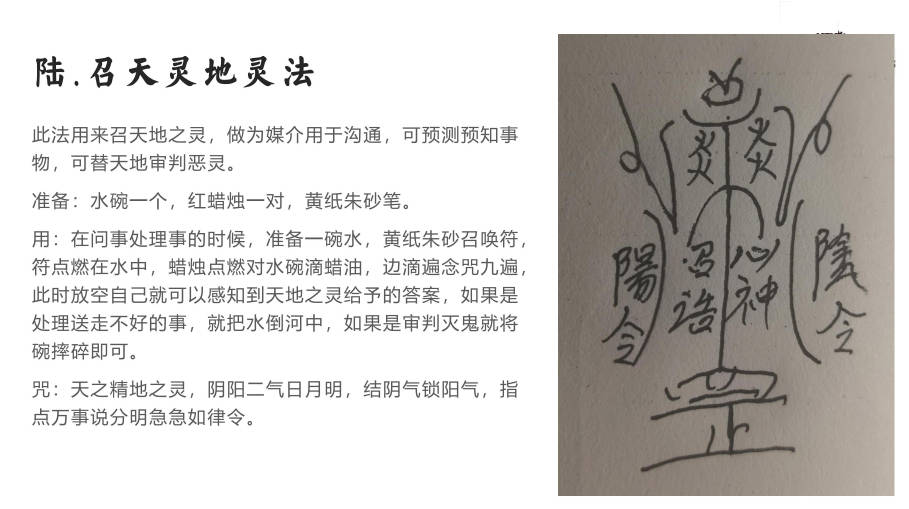 陆.召天灵地灵法
此法用来召天地之灵，做为媒介用于沟通，可预测预知事
物，可替天地审判恶灵。
准备：水碗一个，红蜡烛一对，黄纸朱砂笔。
用：在问事处理事的时候，准备一碗水，黄纸朱砂召唤符，
符点燃在水中，蜡烛点燃对水碗滴蜡油，边滴遍念咒九遍，
此时放空自己就可以感知到天地之灵给予的答案，如果是
处理送走不好的事，就把水倒河中，如果是审判灭鬼就将
碗摔碎即可。
咒：天之精地之灵，阴阳二气日月明，结阴气锁阳气，指
点万事说分明急急如律令。
炎 炎
陽令
召 心
神
陰令